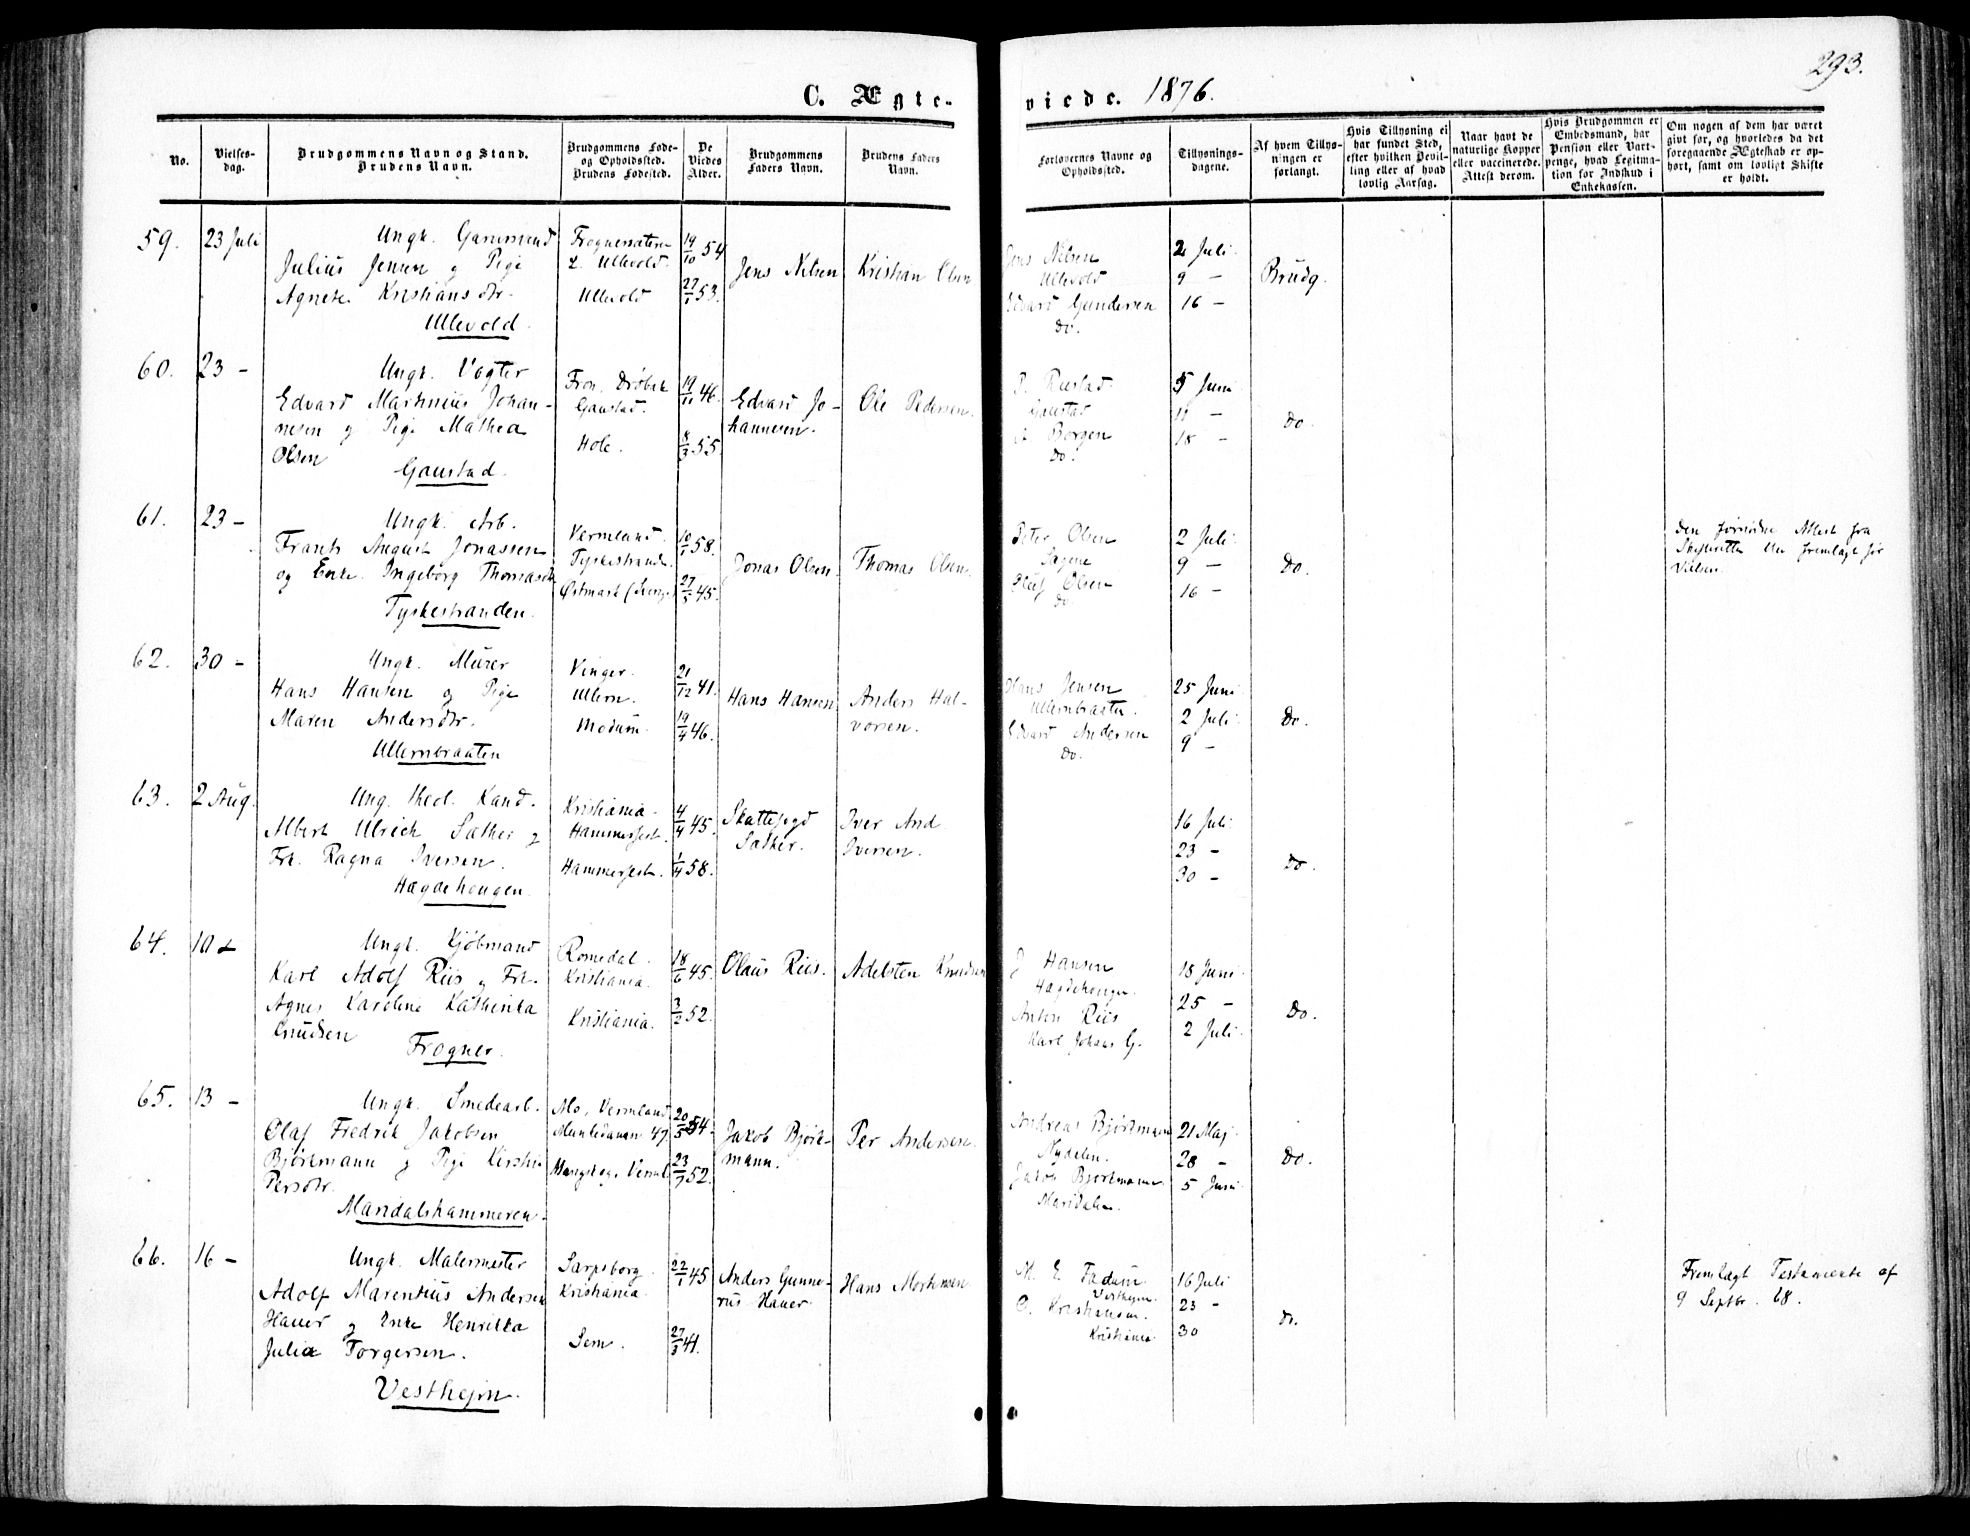 293.
C. Ægteviede. 1876.
No.
Vielsesdag.
Brudgommens Navn og Stand.
Brudens Navn.
Brudgommens Føde-
og Opholdssted.
Brudens Fødested.
De
Viedes
Alder.
Brudgommens
Faders Navn.
Brudens Faders
Navn.
Forlovernes Navne og
Opholdssted.
Tillysnings-
dagene.
Af hvem Tillys-
ningen er
forlangt.
Hvis Tillysning ei
har fundet Sted,
efter hvilken Bevil-
ling eller af hvad
lovlig Aarsag.
Naar havt de
naturlige Kopper
eller vaccinerede.
Attest derom.
Hvis Brudgommen er
Embedsmand, har
Pension eller Vart-
penge, hvad Legitima-
tion for Indskud i
Enkekassen.
Om nogen af dem har været
gift før, og hvorledes da det
foregaaende Ægteskab er op-
hørt, samt om lovligt Skifte
er holdt.
59. 23 Juli
Ungk. Gaardmand
Julius Jensen og Pige
Agnete Kristiansdtr.
Ullevold.
Frognersæteren
Ullevold.
Ullevold
19/10 54
27/1 53.
Jens Nilsen
Kristian Olsen
Jens Nilsen
Ullevold
Edvard Gundersen
do.
2 Juli
9 -
16 -
Brudg.
60. 23 -
Ungk. Vogter
Edvard Martinius Johan-
nesen og Pige Mathea
Olsen
Gaustad.
Fron, Drøbak
Gaustad.
Hole.
19/11 46.
8/3 55
Edvard Jo-
hannesen.
Ole Pedersen.
P. Rustad
Gaustad
Borgen
do.
5 Juni
11 -
18 -
do
61. 23 -
Ungk. Arb.
Frants August Jonassen
og Enke Ingeborg Thomasdtr
Tyskestranden.
Vermland.
Tyskestrand.
Østmark (Sverge)
10/1 58.
27/5 45.
Jonas Olsen.
Thomas Olsen.
Peter Olsen
Sagene
Oluf Olsen
do
2 Juli
9 -
16 -
do.
Den fornødne Attest fra
Skifteretten blev fremlagt før
Vielsen.
62. 30 -
Ungk. Murer
Hans Hansen og Pige
Maren Andersdtr.
Ullernbraaten
Vinger.
Ullern.
Modum.
21/12 41.
19/4 46.
Hans Hansen
Anders Hal-
vorsen.
Hans Jensen
Ullernbraaten.
Edvard Andersen
do.
25 Juni
2 Juli
9 -
do.
63. 2 Aug.
Ung. theol. Kand.
Albert Ulrich Sæther og
Frk. Ragna Iversen.
Hægdehougen.
Kristiania.
Hammerfest.
Hammerfest.
4/4 45.
1/4 58.
Skattefogd
Sæther.
Iver And
Iversen.
16 Juli
23 -
30 -
do.
64. 10 -
Ungk. Kjøbmand
Karl Adolf Riis og Frk.
Agnes Karoline Kathinka
Knudsen
Frogner.
Romedal.
Kristiania.
Kristiania.
18/6 45.
3/2 52.
Olaus Riis.
Adelsten Knudsen
J Hansen
Hægdehougen.
Anton Riis
Karl Johans G.
18 Juni
25 -
2 Juli
do.
65. 13 -
Ungk. Smedearb.
Olaf Fredrik Jakobsen
Bjørkmann og Pige Kirstine
Persdtr.
Maridalshammeren.
Als, Vermland
Vermland
20/5 54.
23/7 52.
Jakob Bjørk-
mann.
Per Andersen.
Andreas Bjørkmann
Nydalen.
Jakob Bjørkmann
Maridalen.
21 Maj
28 -
5 Juni
do.
66. 16 -
Ungk. Malermester
Adolf Marentius Andersen
Hauer og Enke Henrikka
Julia Torgersen.
Vestheim.
Sarpsborg.
Kristiania.
Sem.
22/1 45
27/3 41.
Anders Gunne-
rus Hauer.
Hans Mortensen.
M. E. Fadum
Vestheim.
O. Kristiansen.
Kristiania
16 Juli
23 -
30
do.
Fremlagt Testamente af
9 Septbr. 68.